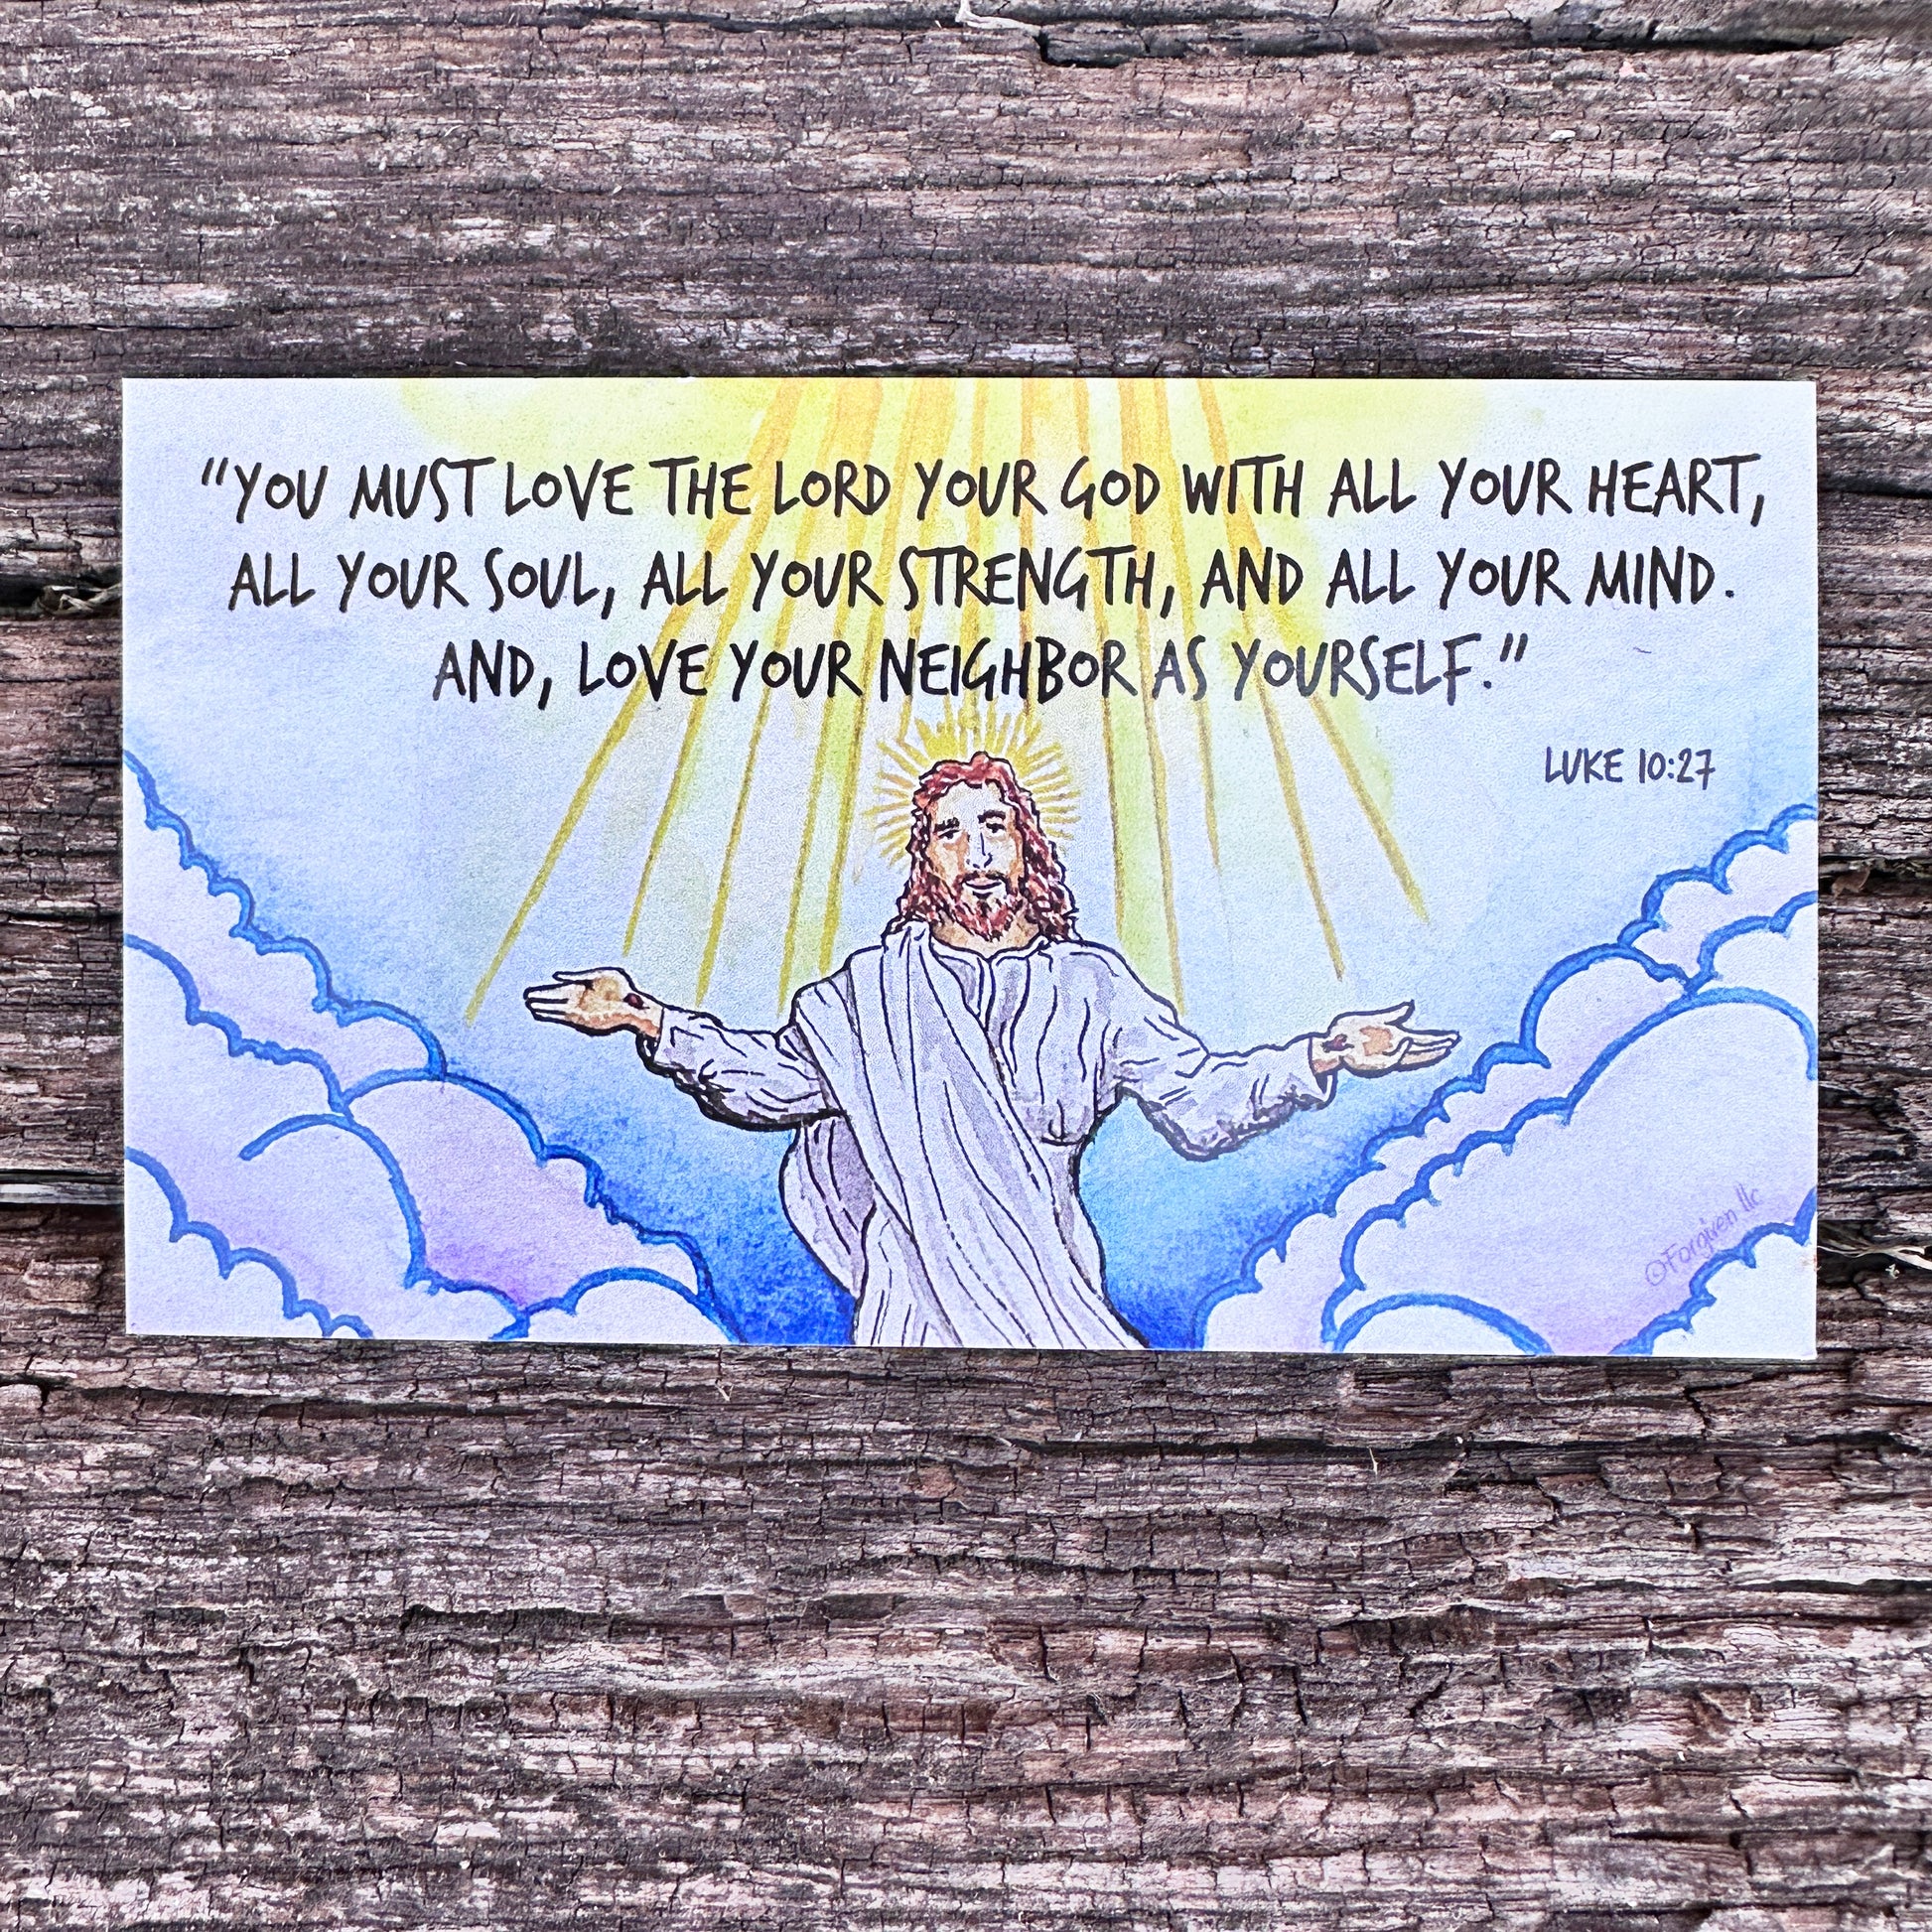 “YOU MUST LOVE THE LORD YOUR GOD WITH ALL YOUR HEART,
ALL YOUR SOUL, ALL YOUR STRENGTH, AND ALL YOUR MIND.
AND, LOVE YOUR NEIGHBOR AS YOURSELF.”
LUKE 10:27
©Forgiven llc